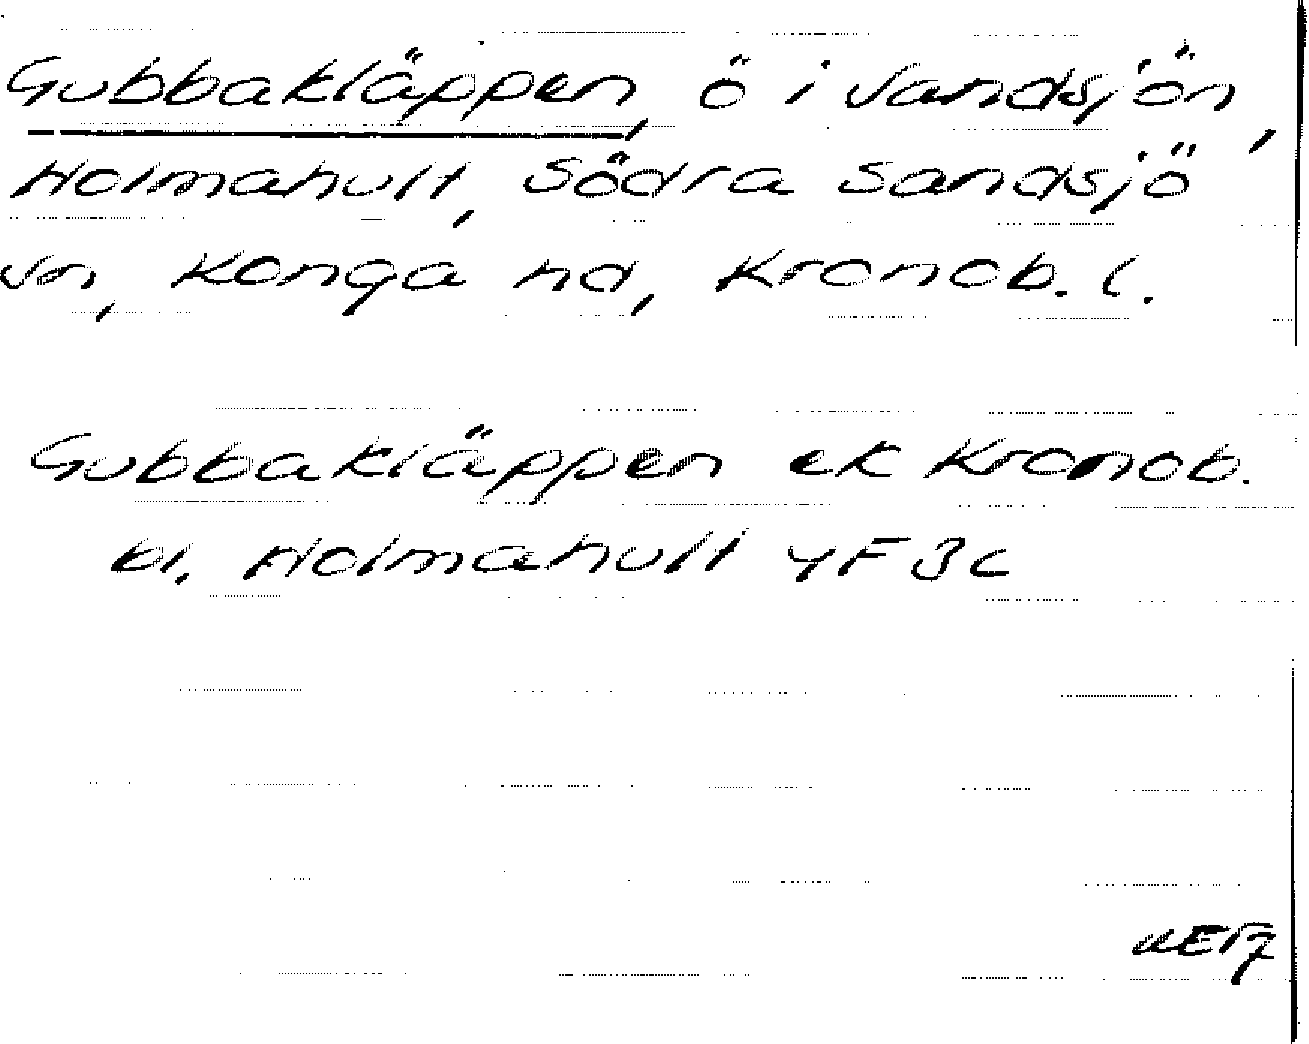 Gubbakläppen, ö i Sandsjön,
Holmahult, Södra Sandsjö
sn, Konga hd, Kronob. l.
Gubbakläppen ek Kronob.
bl. Holmahult 4F 3c